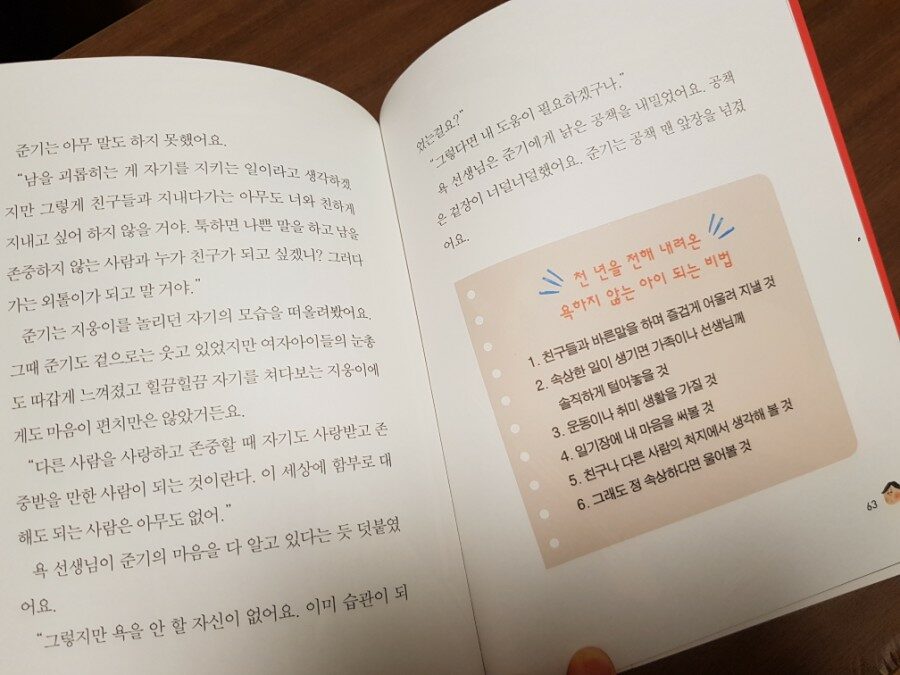 준기는 아무 말도 하지 못했어요.
“남을 괴롭히는 게 자기를 지키는 일이라고 생각하겠
지만 그렇게 친구들과 지내다가는 아무도 너와 친하게
지내고 싶어 하지 않을 거야. 툭하면 나쁜 말을 하고 남을
존중하지 않는 사람과 누가 친구가 되고 싶겠니? 그러다
가는 외톨이가 되고 말 거야.”
준기는 지웅이를 놀리던 자기의 모습을 떠올려봤어요.
그때 준기도 겉으로는 웃고 있었지만 여자아이들의 눈총
도 따갑게 느껴졌고 힐끔힐끔 자기를 쳐다보는 지웅이에
게도 마음이 편치만은 않았거든요.
“다른 사람을 사랑하고 존중할 때 자기도 사랑받고 존
중받을 만한 사람이 되는 것이란다. 이 세상에 함부로 대
해도 되는 사람은 아무도 없어.”
욕 선생님이 준기의 마음을 다 알고 있다는 듯 덧붙였
어요.
“그렇지만 욕을 안 할 자신이 없어요. 이미 습관이 되
었는걸요?”
“그렇다면 내 도움이 필요하겠구나.”
욕 선생님은 준기에게 낡은 공책을 내밀었어요. 공책
은 겉장이 너덜너덜했어요. 준기는 공책 맨 앞장을 넘겼
어요.
천 년을 전해 내려온
욕하지 않는 아이 되는 비법
1. 친구들과 바른말을 하며 즐겁게 어울려 지낼 것
2. 속상한 일이 생기면 가족이나 선생님께
솔직하게 털어놓을 것
3. 운동이나 취미 생활을 가질 것
4. 일기장에 내 마음을 써볼 것
5. 친구나 다른 사람의 처지에서 생각해 볼 것
6. 그래도 정 속상하다면 울어볼 것
63